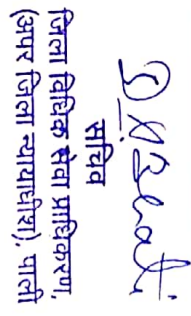 सचिव
जिला विधिक सेवा प्राधिकरण,
(अपर जिला न्यायाधीश), पाली